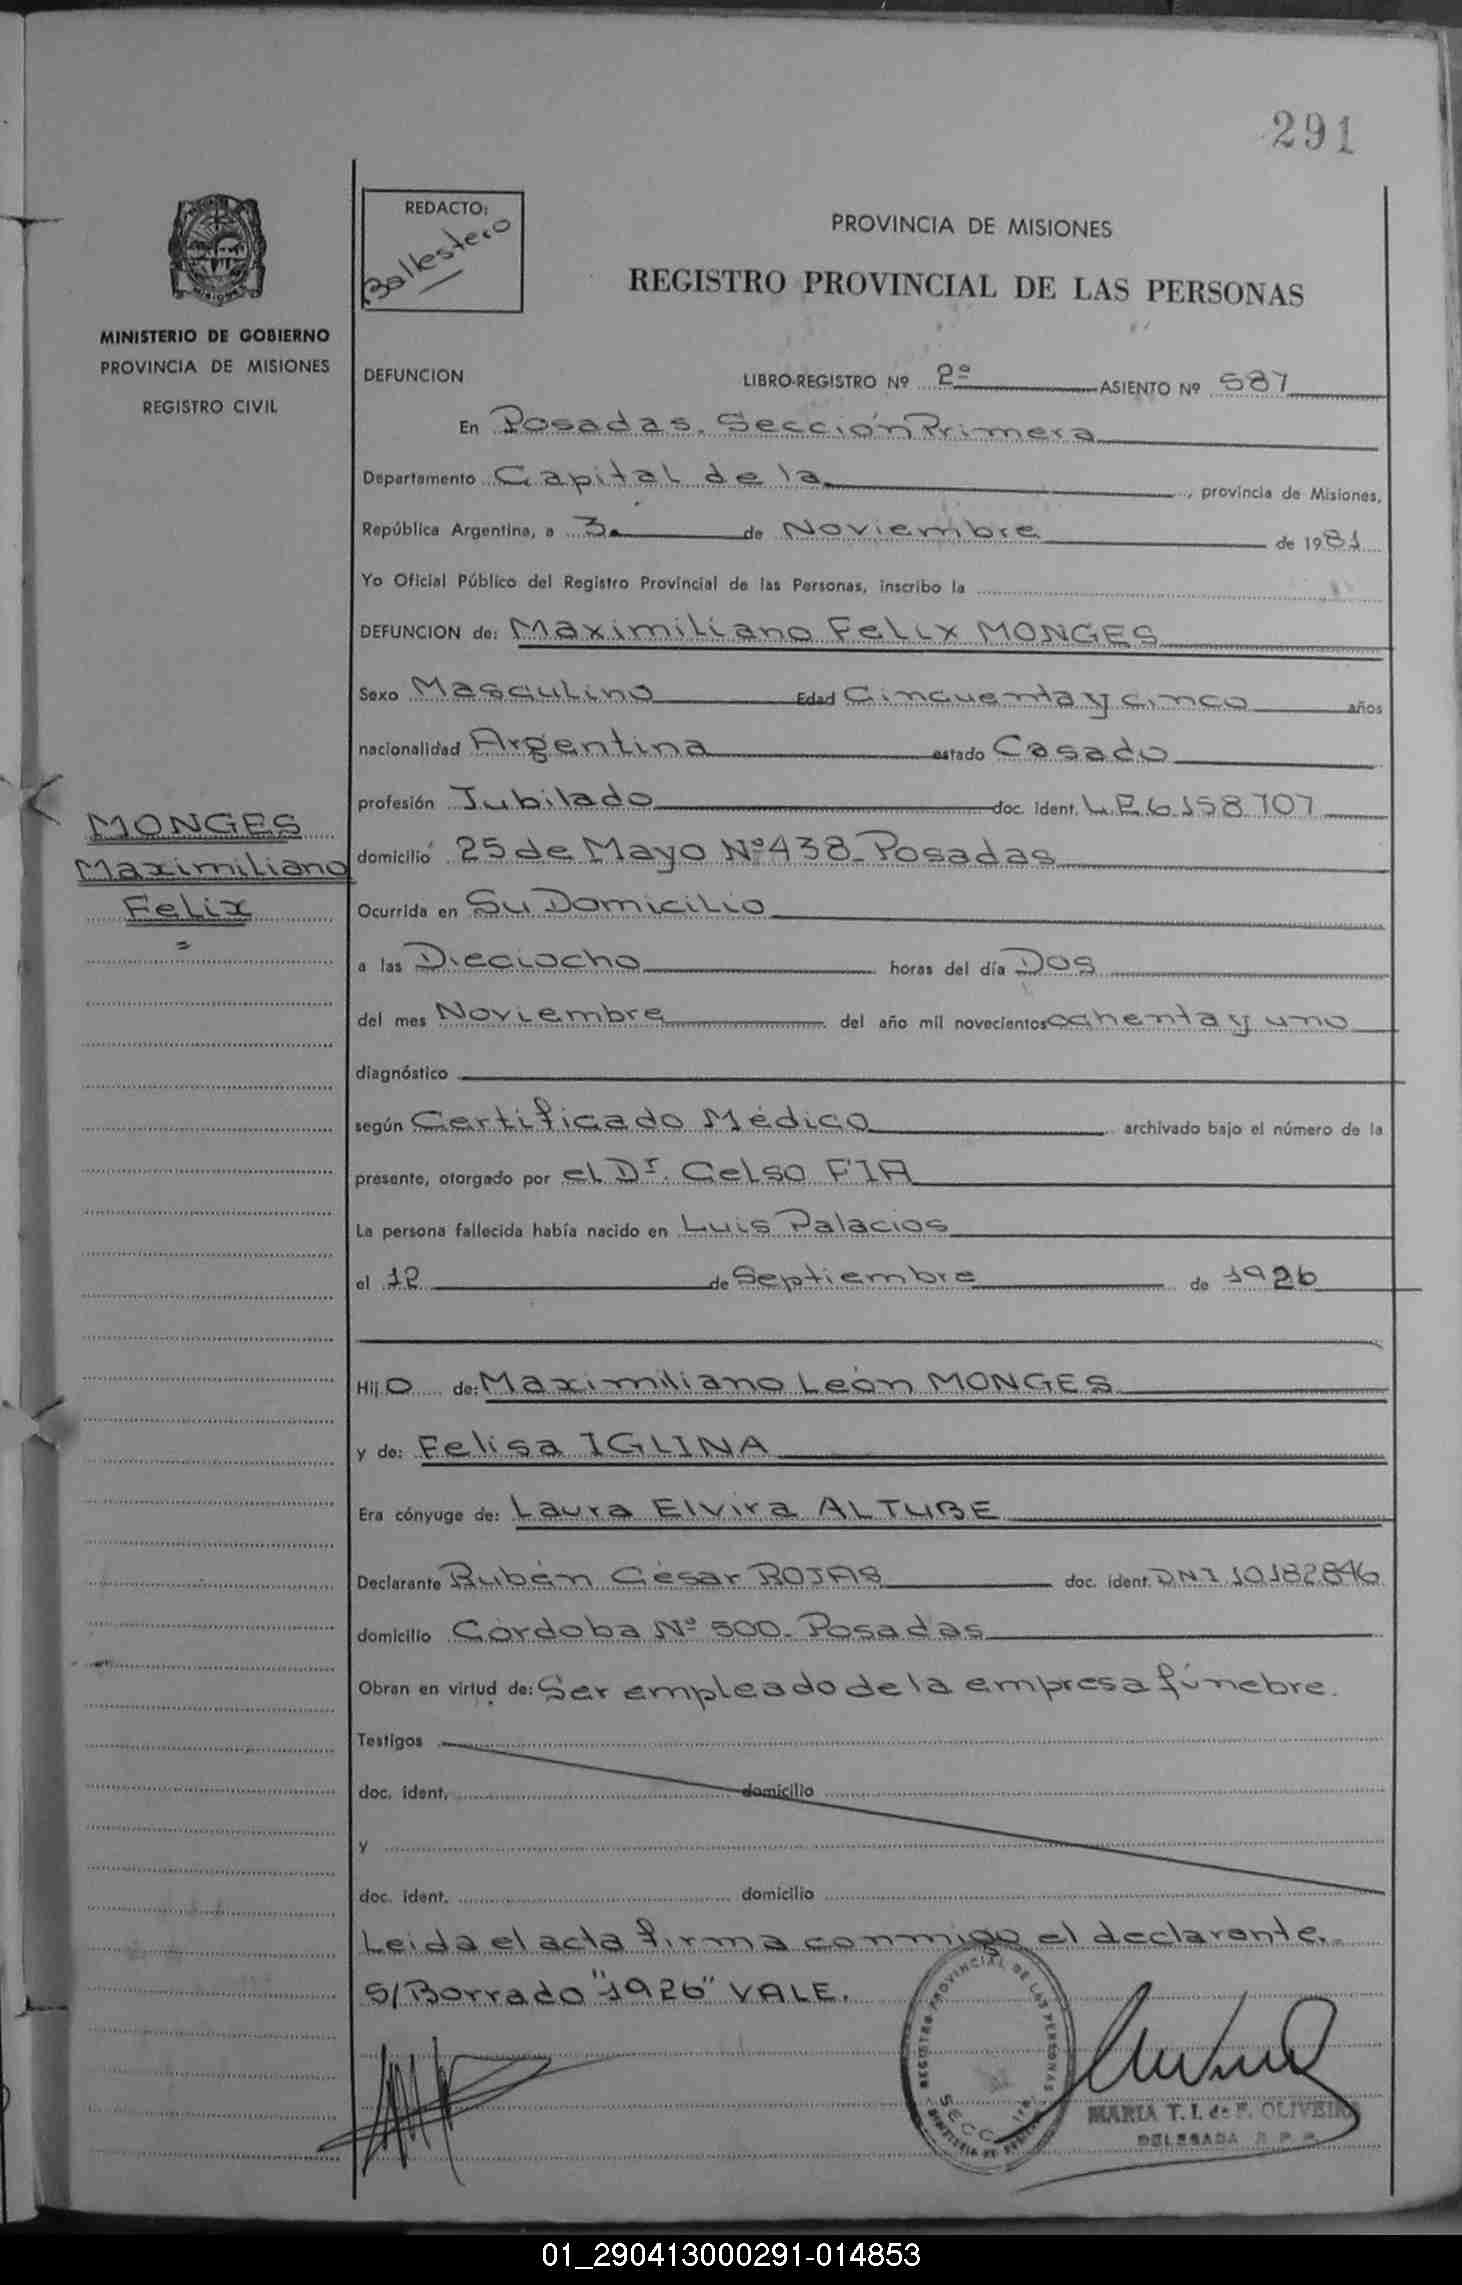 291
REDACTO:
Ballestero
PROVINCIA DE MISIONES
REGISTRO PROVINCIAL DE LAS PERSONAS
MINISTERIO DE GOBIERNO
PROVINCIA DE MISIONES
REGISTRO CIVIL
DEFUNCION LIBRO-REGISTRO Nº 2º ASIENTO Nº 587
En Posadas. Sección Primera
Departamento Capital de la, provincia de Misiones,
República Argentina, a 3. de Noviembre de 1981
Yo Oficial Público del Registro Provincial de las Personas, inscribo la
DEFUNCION de: Maximiliano Felix MONGES
Sexo Masculino Edad Cincuenta y cinco años
nacionalidad Argentina estado Casado
profesión Jubilado doc. ident. L.E 6.158.707
MONGES
Maximiliano
Felix
domicilio 25 de Mayo Nº 438 - Posadas
Ocurrida en Su Domicilio
a las Dieciocho horas del día Dos
del mes Noviembre del año mil novecientos ochenta y uno
diagnóstico
según Certificado Médico archivado bajo el número de la
presente, otorgado por el Dr. Celso FIA
La persona fallecida había nacido en Luis Palacios
el 12 de Septiembre de 1926
Hijo de: Maximiliano León MONGES
y de: Felisa IGLINA
Era cónyuge de: Laura Elvira ALTUBE
Declarante Rubén César ROJAS doc. ident. DNI 10.182.846
domicilio Córdoba Nº 500 - Posadas
Obran en virtud de: Ser empleado de la empresa fúnebre.
Testigos
doc. ident. domicilio
y
doc. ident. domicilio
Leida el acta firma conmigo el declarante.-
S/Borrado "1926" VALE.
REGISTRO PROVINCIAL DE LAS PERSONAS
SECC. 1ra.
MARIA T. I. de F. OLIVEIRA
DELEGADA R. P. P.
01_290413000291-014853